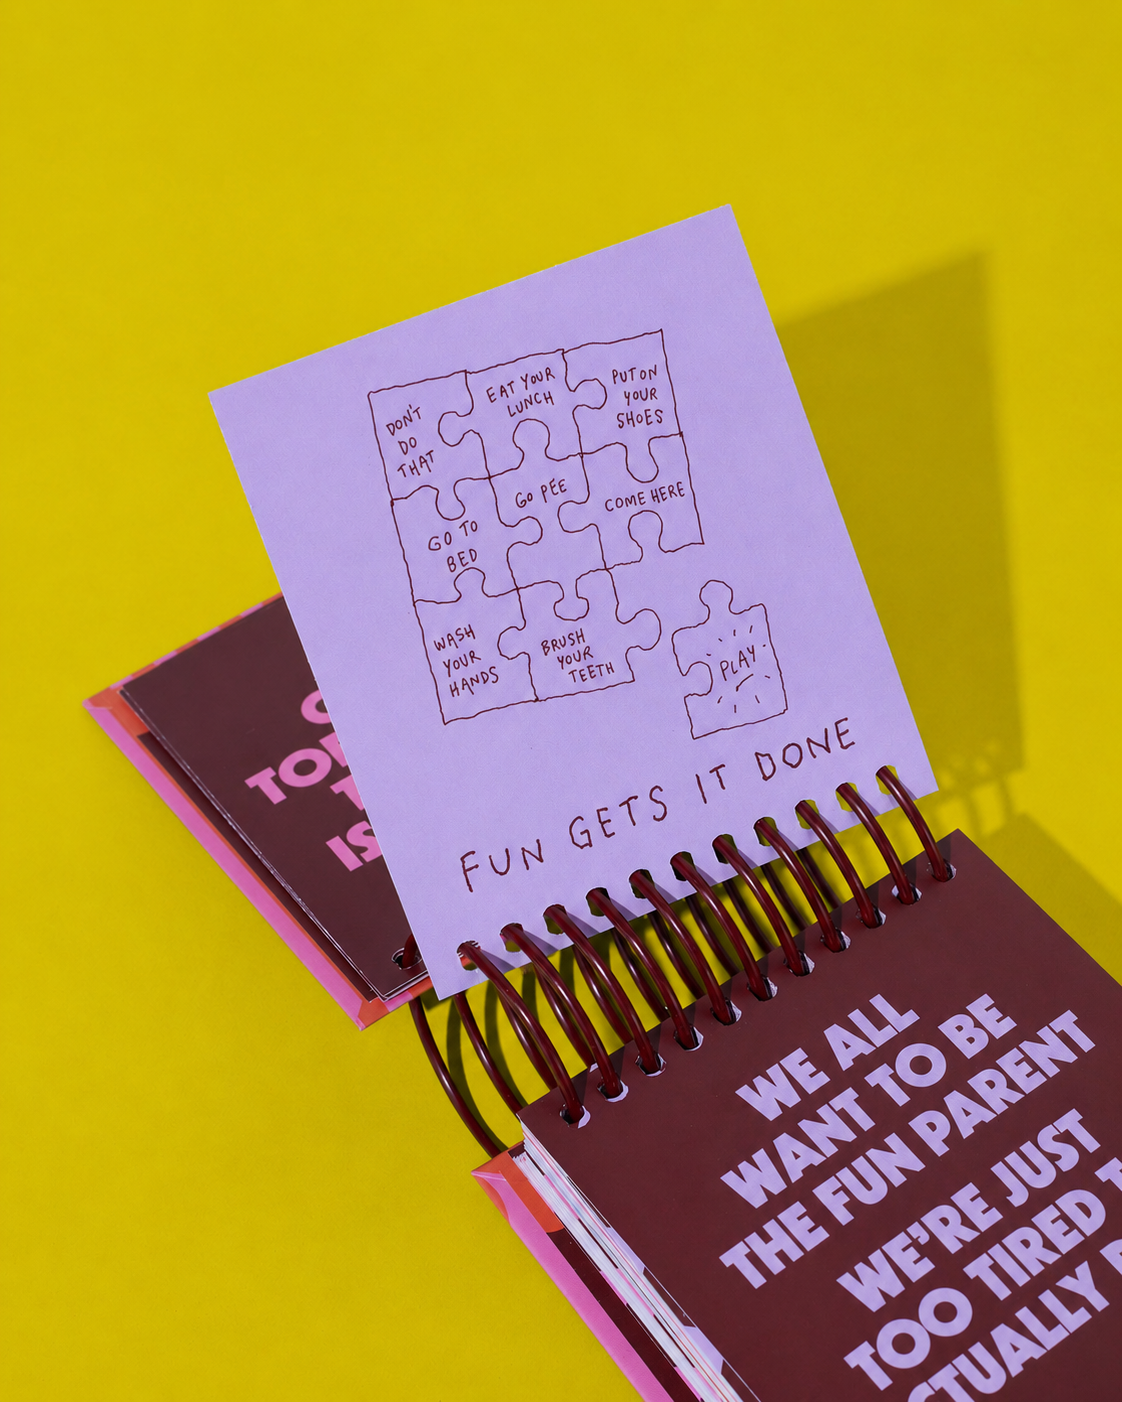 DON'T
DO
THAT
EAT YOUR
LUNCH
PUT ON
YOUR
SHOES
GO TO
BED
GO PEE
COME HERE
WASH
YOUR
HANDS
BRUSH
YOUR
TEETH
PLAY
FUN GETS IT DONE
IS
WE ALL
WANT TO BE
THE FUN PARENT
WE'RE JUST
TOO TIRED